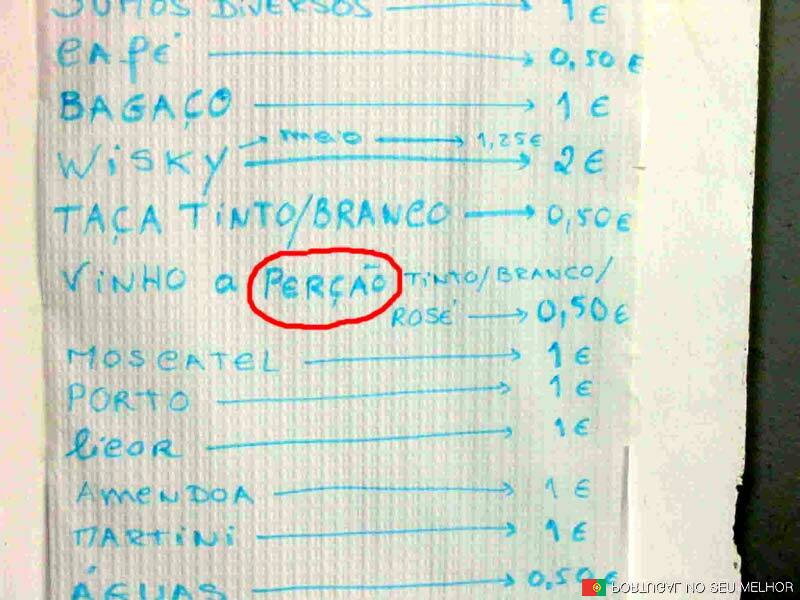 SUMOS DIVERSOS → 1 €
CAFÉ → 0,50 €
BAGAÇO → 1 €
WISKY → meio → 1,25€
→ 2 €
TAÇA TINTO/BRANCO → 0,50€
VINHO a PERÇÃO TINTO/BRANCO/
ROSÉ → 0,50€
MOSCATEL → 1 €
PORTO → 1 €
licor → 1 €
AMENDOA → 1 €
MARTINI → 1 €
ÁGUAS → 0,50€
PORTUGAL NO SEU MELHOR